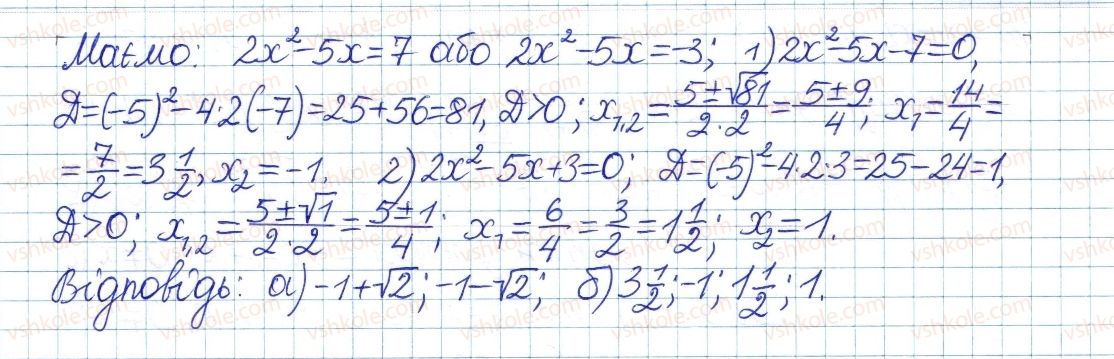 Маємо: 2x²-5x=7 або 2x²-5x=-3; 1) 2x²-5x-7=0,
Д=(-5)²-4·2(-7)=25+56=81, Д>0; x₁,₂=(5±√81)/(2·2)=(5±9)/4; x₁=14/4=
=7/2=3 1/2, x₂=-1. 2) 2x²-5x+3=0; Д=(-5)²-4·2·3=25-24=1,
Д>0; x₁,₂=(5±√1)/(2·2)=(5±1)/4; x₁=6/4=3/2=1 1/2; x₂=1.
Відповідь: а) -1+√2; -1-√2; б) 3 1/2; -1; 1 1/2; 1.